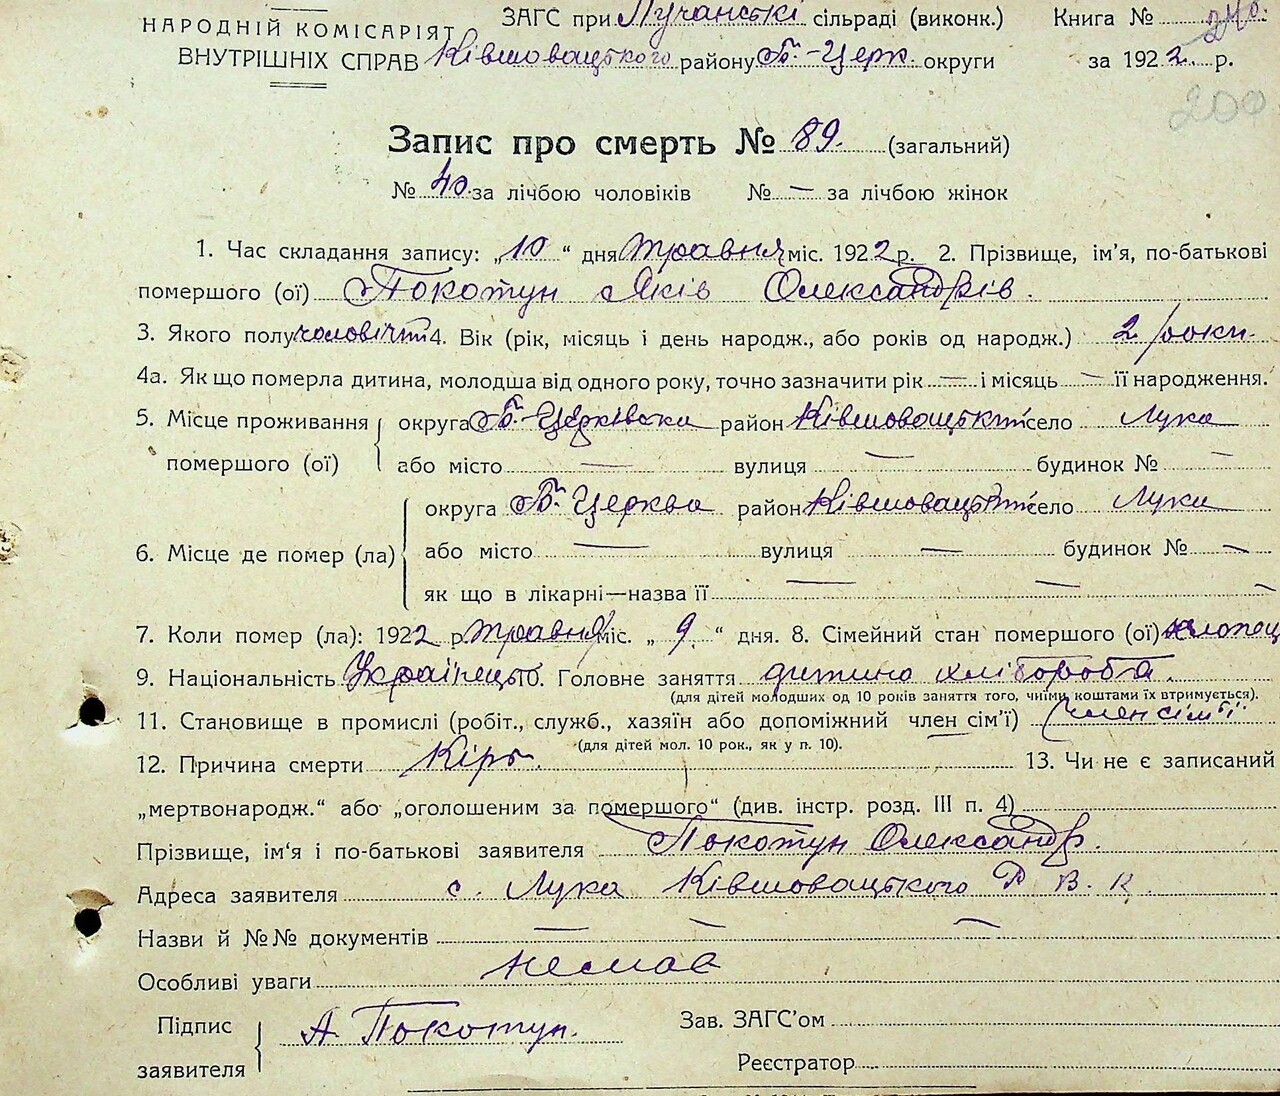 НАРОДНІЙ КОМІСАРІЯТ ЗАГС при Лучанські сільраді (виконк.) Книга №
ВНУТРІШНІХ СПРАВ Ківшовацького району Б.-Церк. округи за 1922 р.
200
Запис про смерть № 89. (загальний)
№ 40 за лічбою чоловіків № — за лічбою жінок
1. Час складання запису: „10“ дня травня міс. 1922 р. 2. Прізвище, ім'я, по-батькові
помершого (ої) Покотун Яків Олександрів.
3. Якого полу чоловічт 4. Вік (рік, місяць і день народж., або років од народж.) 2 роки.
4а. Як що померла дитина, молодша від одного року, точно зазначити рік — і місяць — її народження.
5. Місце проживання округа Б.-Церківска район Ківшовацькт село Лука
помершого (ої) або місто — вулиця — будинок № —
округа Б. Церква район Ківшовацькт село Лука
6. Місце де помер (ла) або місто — вулиця — будинок № —
як що в лікарні—назва її — — —
7. Коли помер (ла): 1922 р. травня міс. „9.“ дня. 8. Сімейний стан помершого (ої) хлопец
9. Національність Українець 10. Головне заняття дитина хлібороба.
(для дітей молодших од 10 років заняття того, чиїми коштами їх втримується).
11. Становище в промислі (робіт., служб., хазяїн або допоміжний член сім'ї) Член сім'ї
(для дітей мол. 10 рок., як у п. 10).
12. Причина смерти Кірь. 13. Чи не є записаний
„мертвонародж.“ або „оголошеним за помершого“ (див. інстр. розд. III п. 4)
Прізвище, ім'я і по-батькові заявителя Покотун Олександр.
Адреса заявителя с. Лука Ківшовацького Р. В. К.
Назви й №№ документів — — —
Особливі уваги немає
Підпис заявителя А. Покотун.
Зав. ЗАГС'ом
Реєстратор